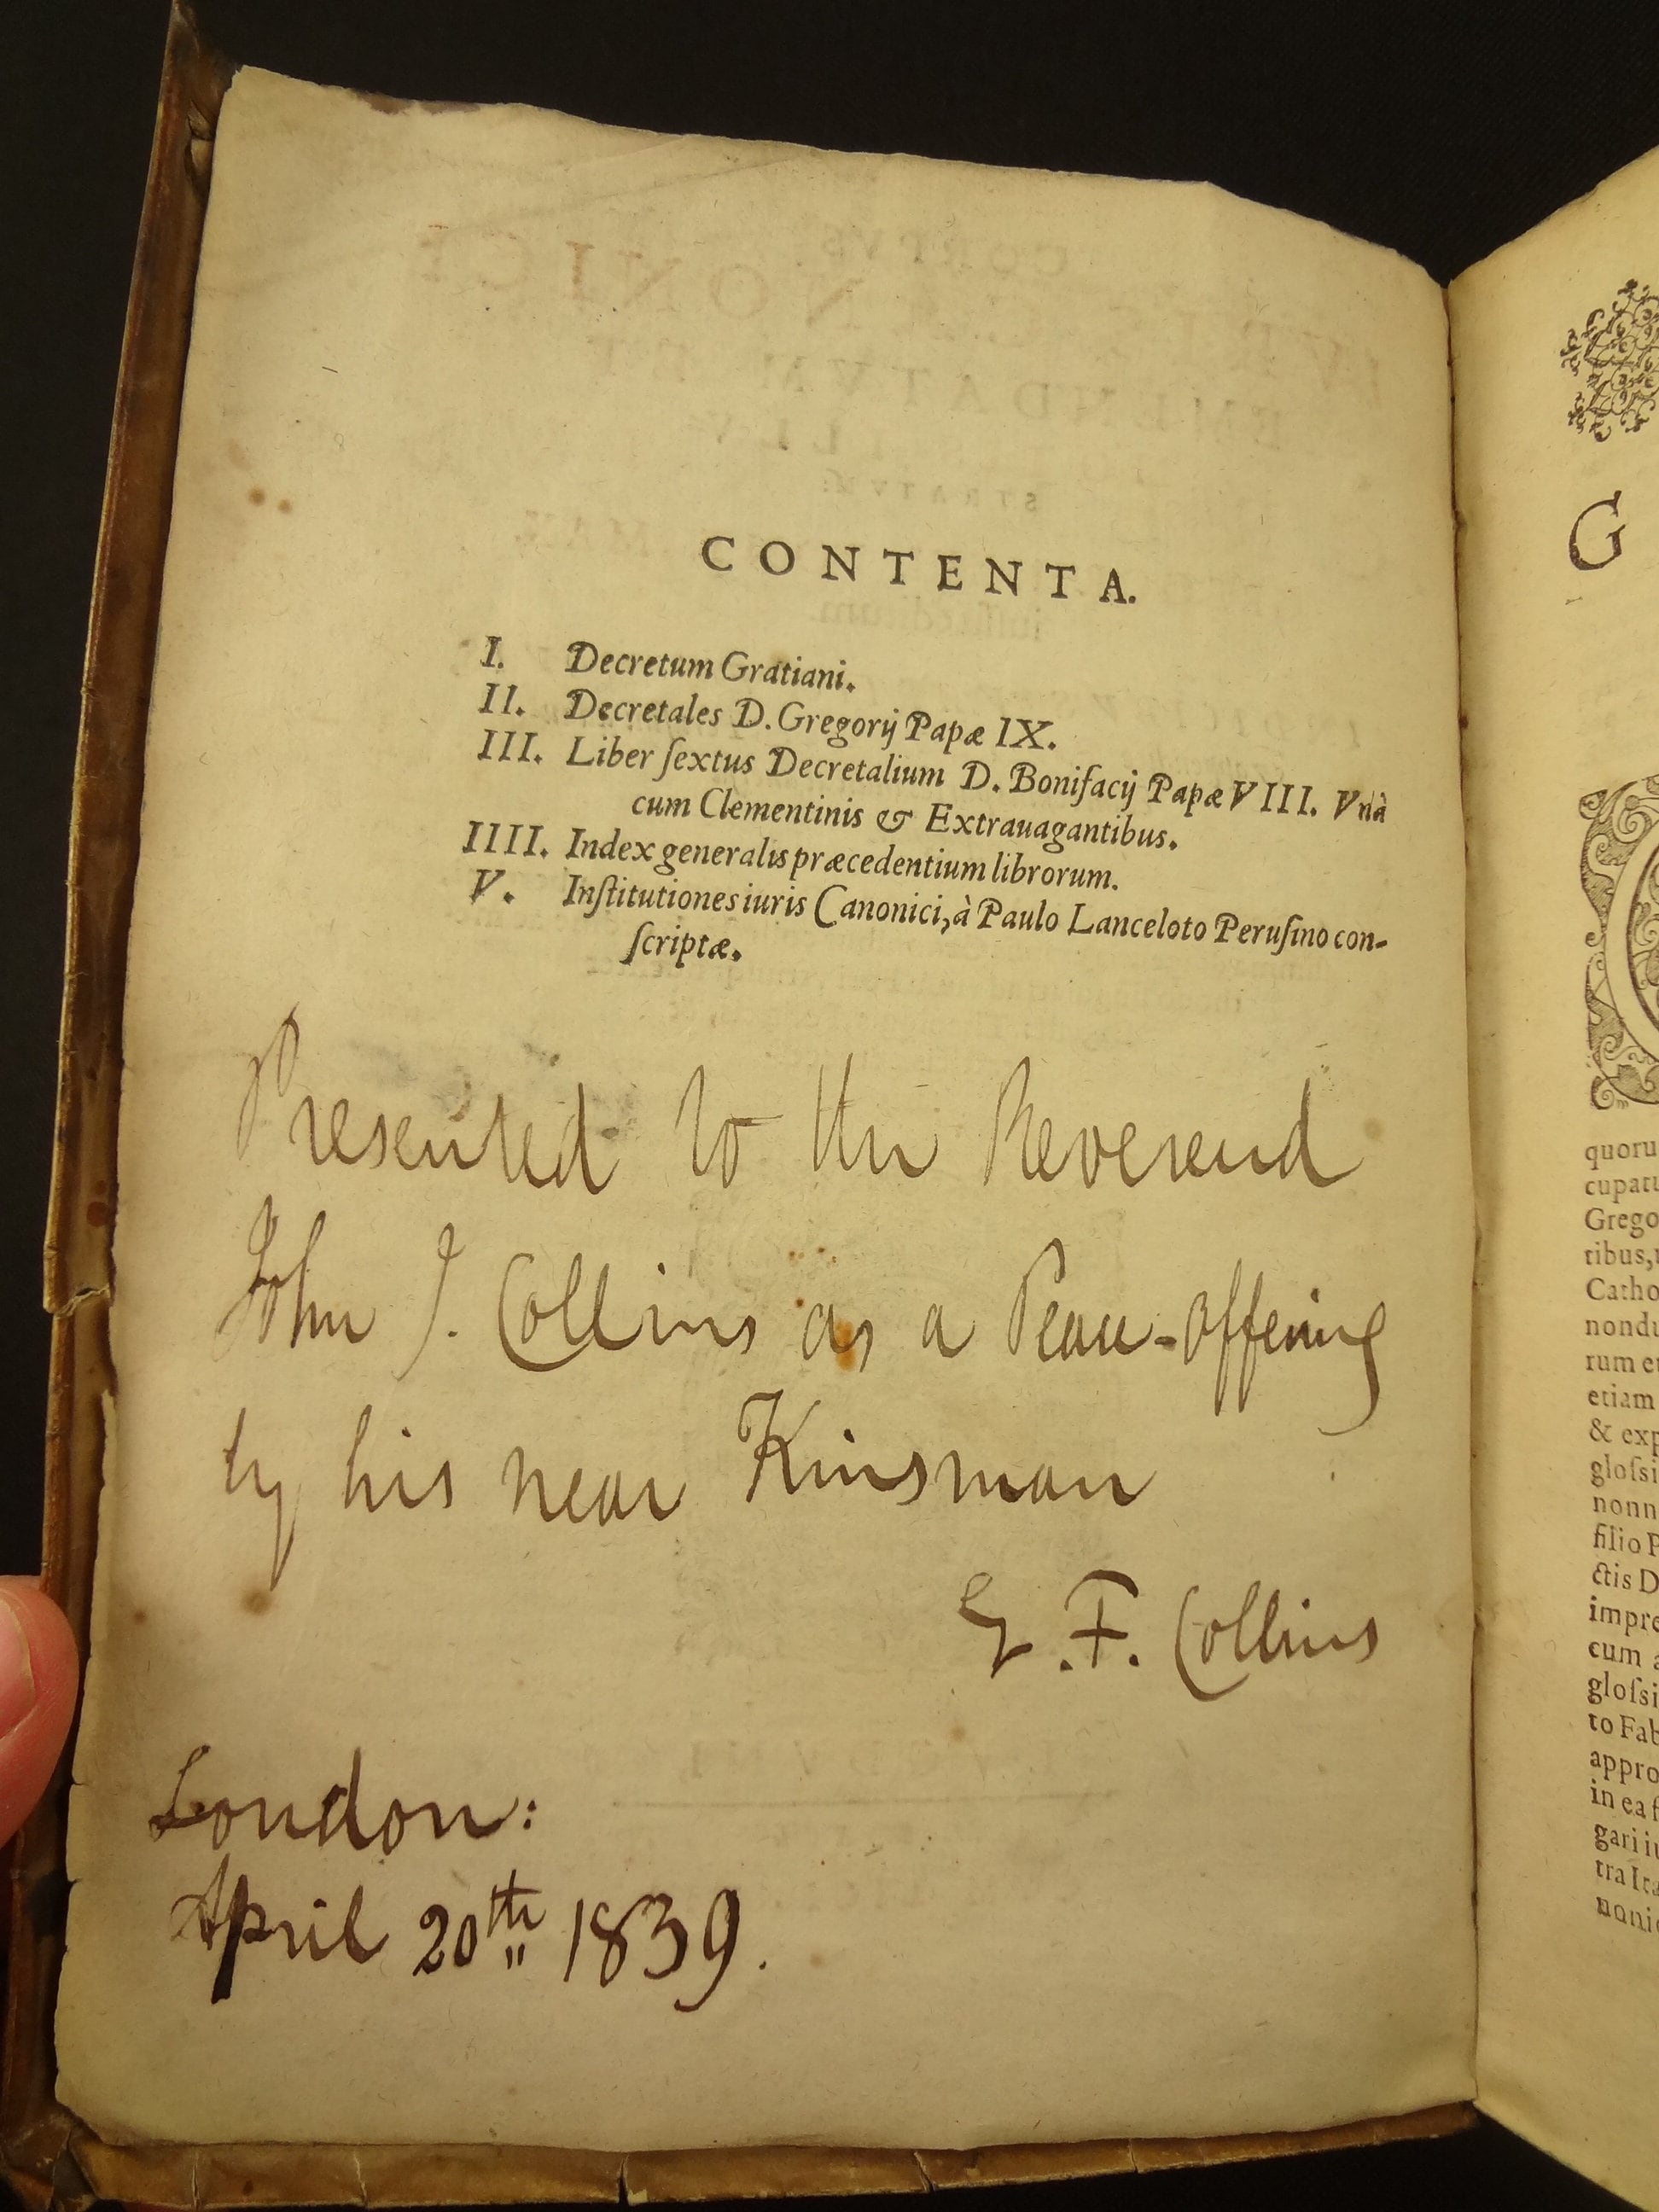 CONTENTA.
I. Decretum Gratiani.
II. Decretales D. Gregorij Papæ IX.
III. Liber ſextus Decretalium D. Bonifacij Papæ VIII. Vnà
cum Clementinis & Extrauagantibus.
IIII. Index generalis præcedentium librorum.
V. Inſtitutiones iuris Canonici, à Paulo Lanceloto Peruſino con-
ſcriptæ.
Presented to the Reverend
John J. Collins as a Peace-offering
by his near Kinsman
G. F. Collins
London:
April 20th 1839.
G
quoru
cupatu
Grego
tibus,
Catho
nondu
rum et
etiam
& exp
gloſsi
nonn
filio P
ctis D
impre
cum a
gloſsi
to Fab
appro
in ea f
gari iu
tra Ita
nonic